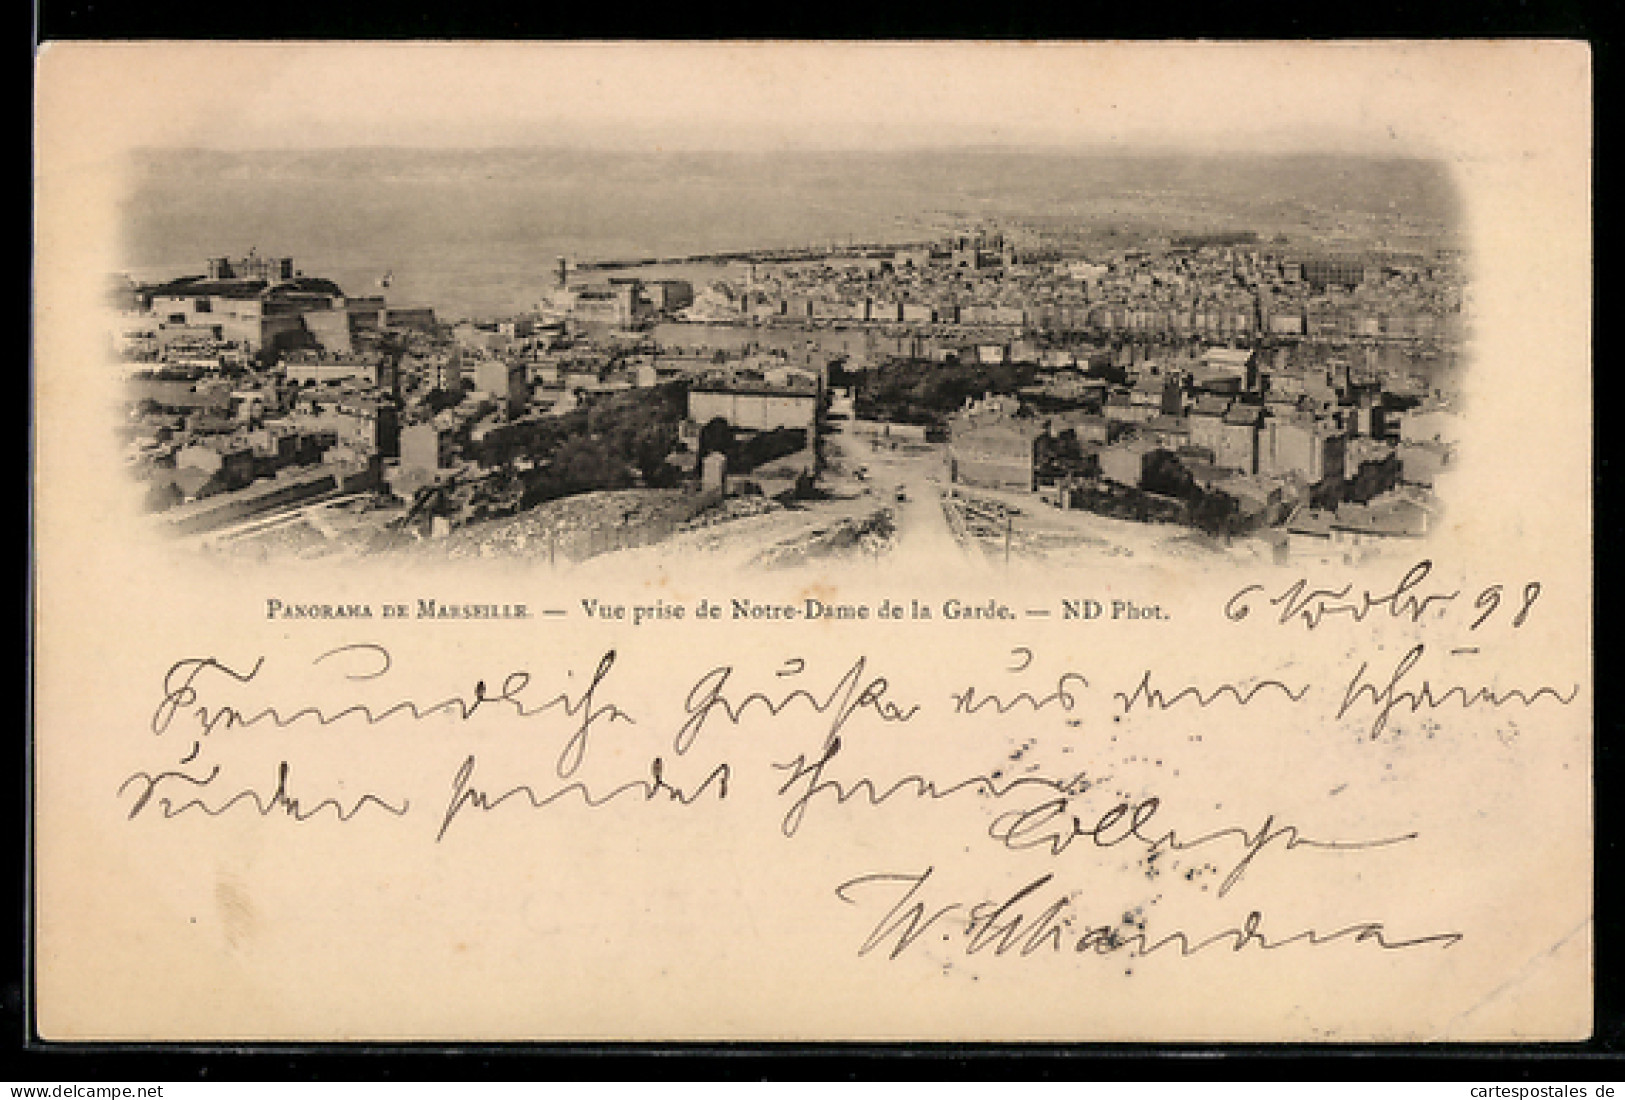 PANORAMA DE MARSEILLE. — Vue prise de Notre-Dame de la Garde. — ND Phot.
6 Novbr. 98
Freundliche Grüße aus dem schönen
Süden sendet Ihnen
College
W.
delcampe.net
cartespostales de